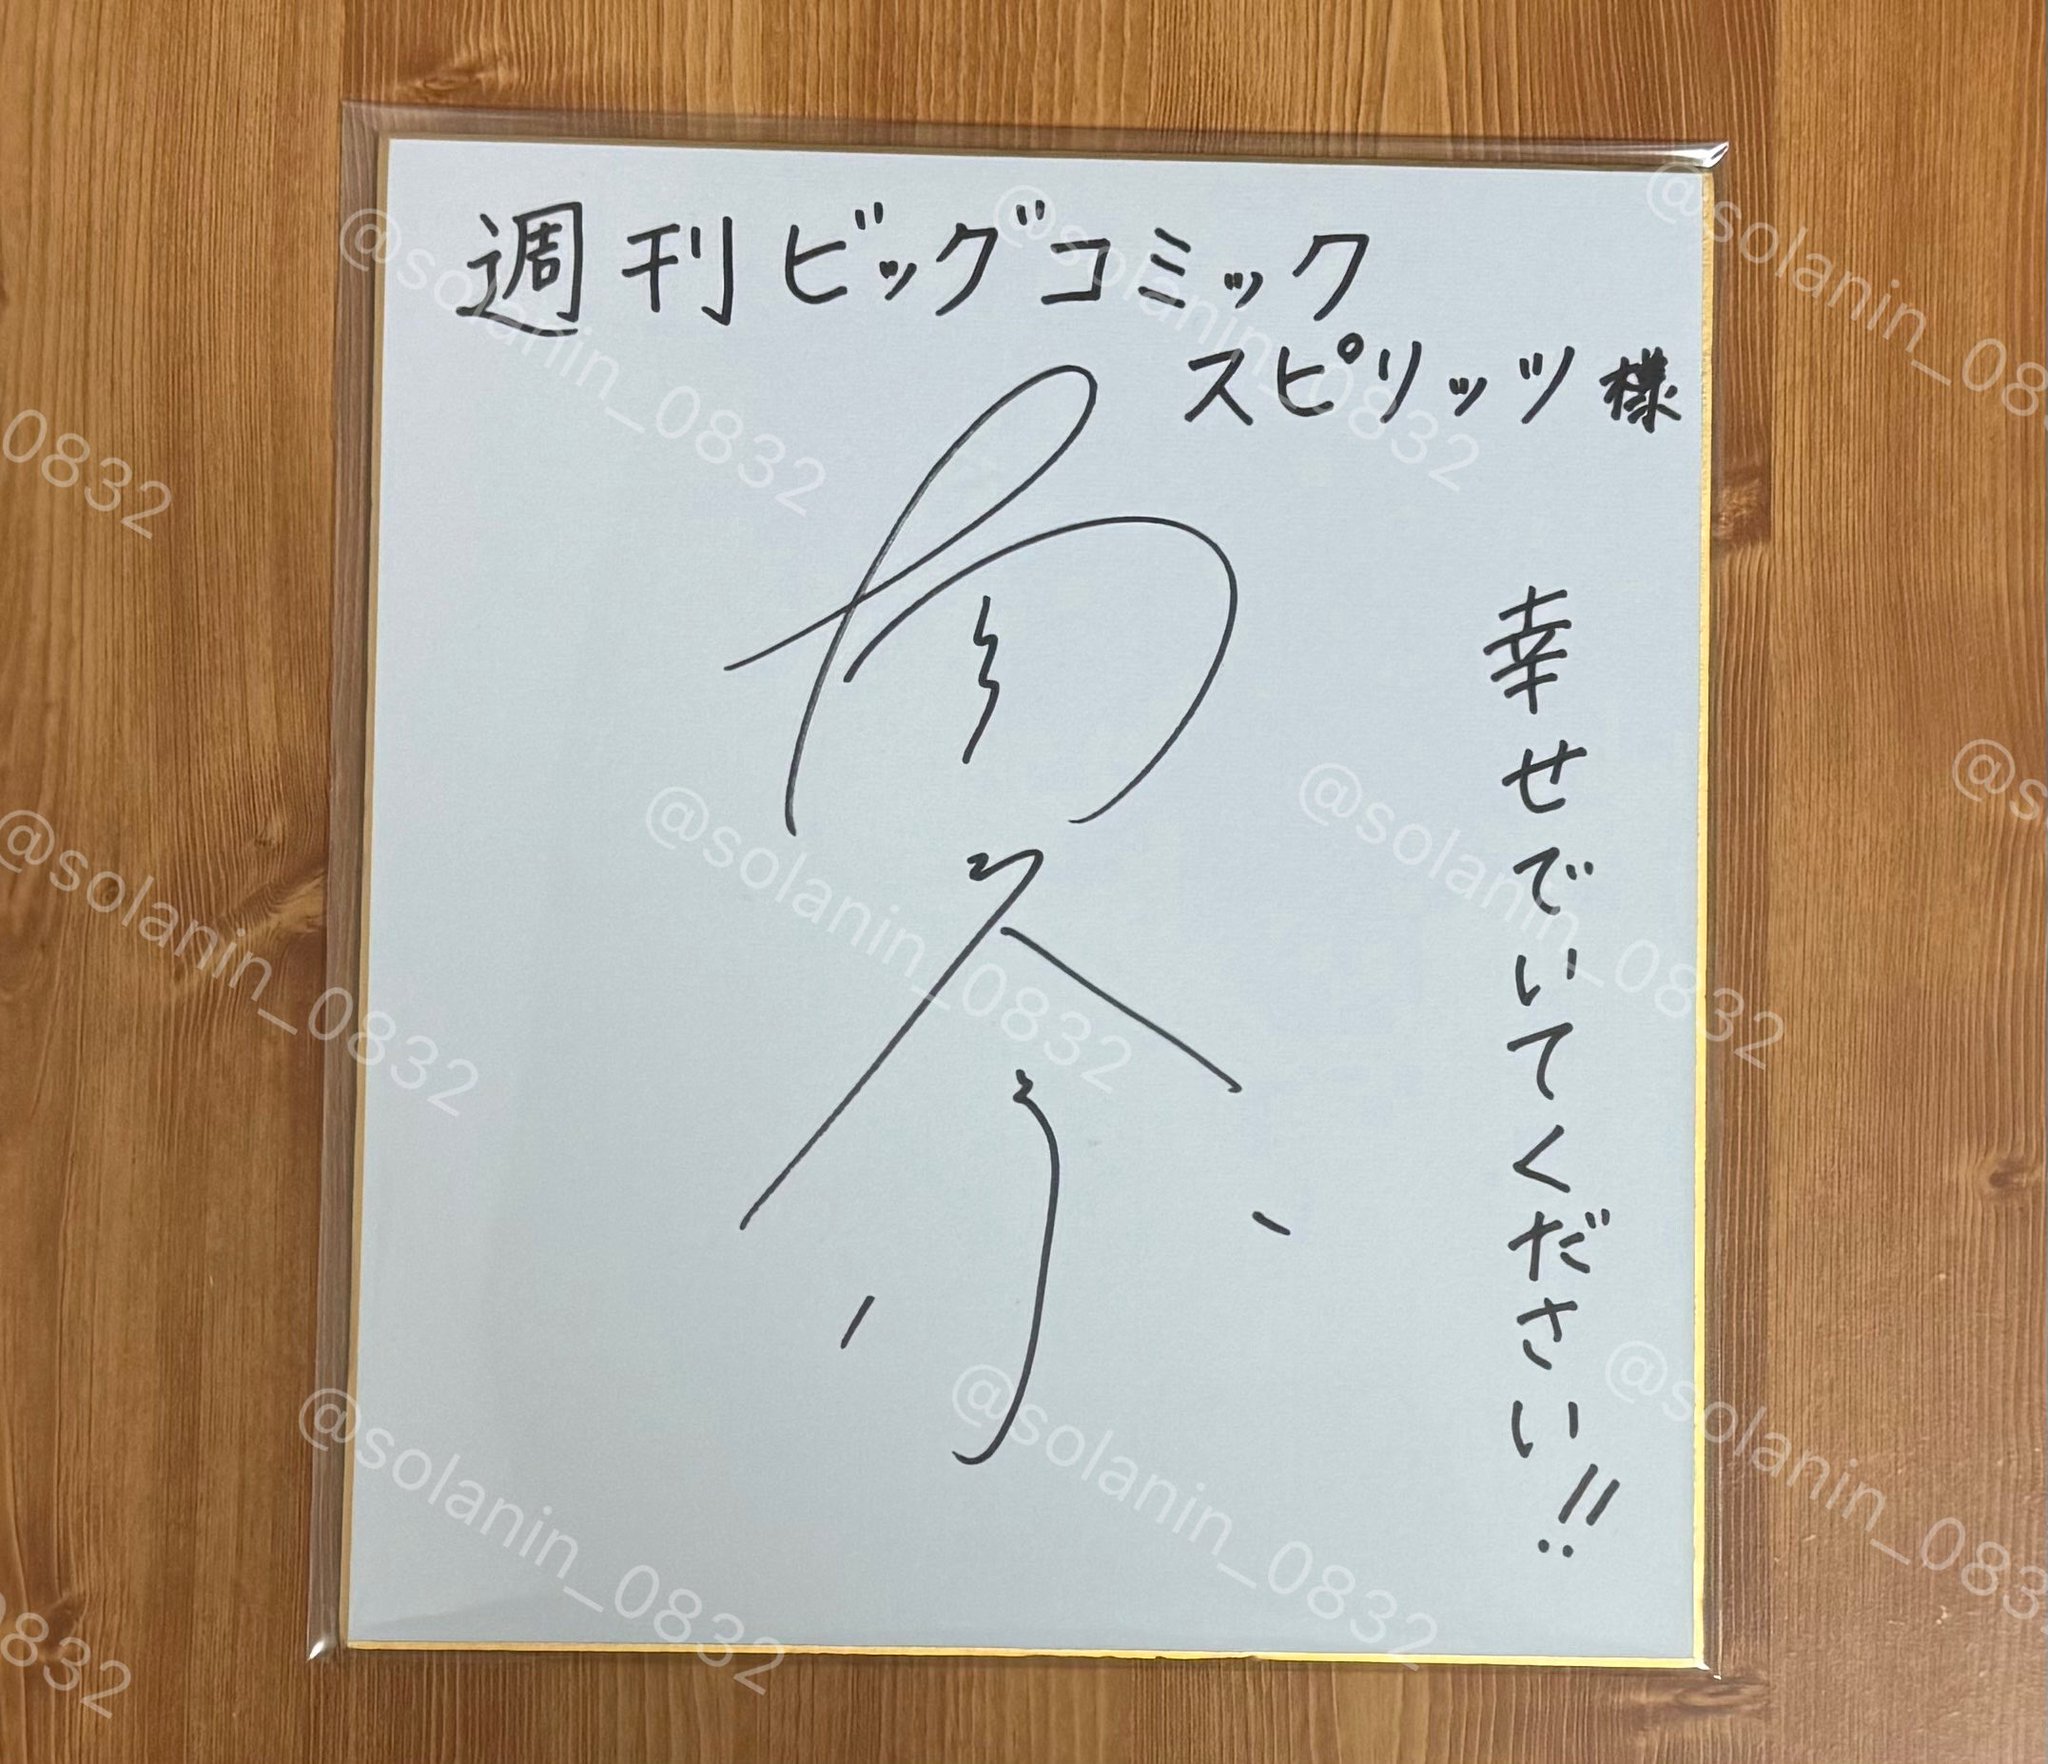 週刊ビッグコミック
スピリッツ様
幸せでいてください!!
@solanin_0832